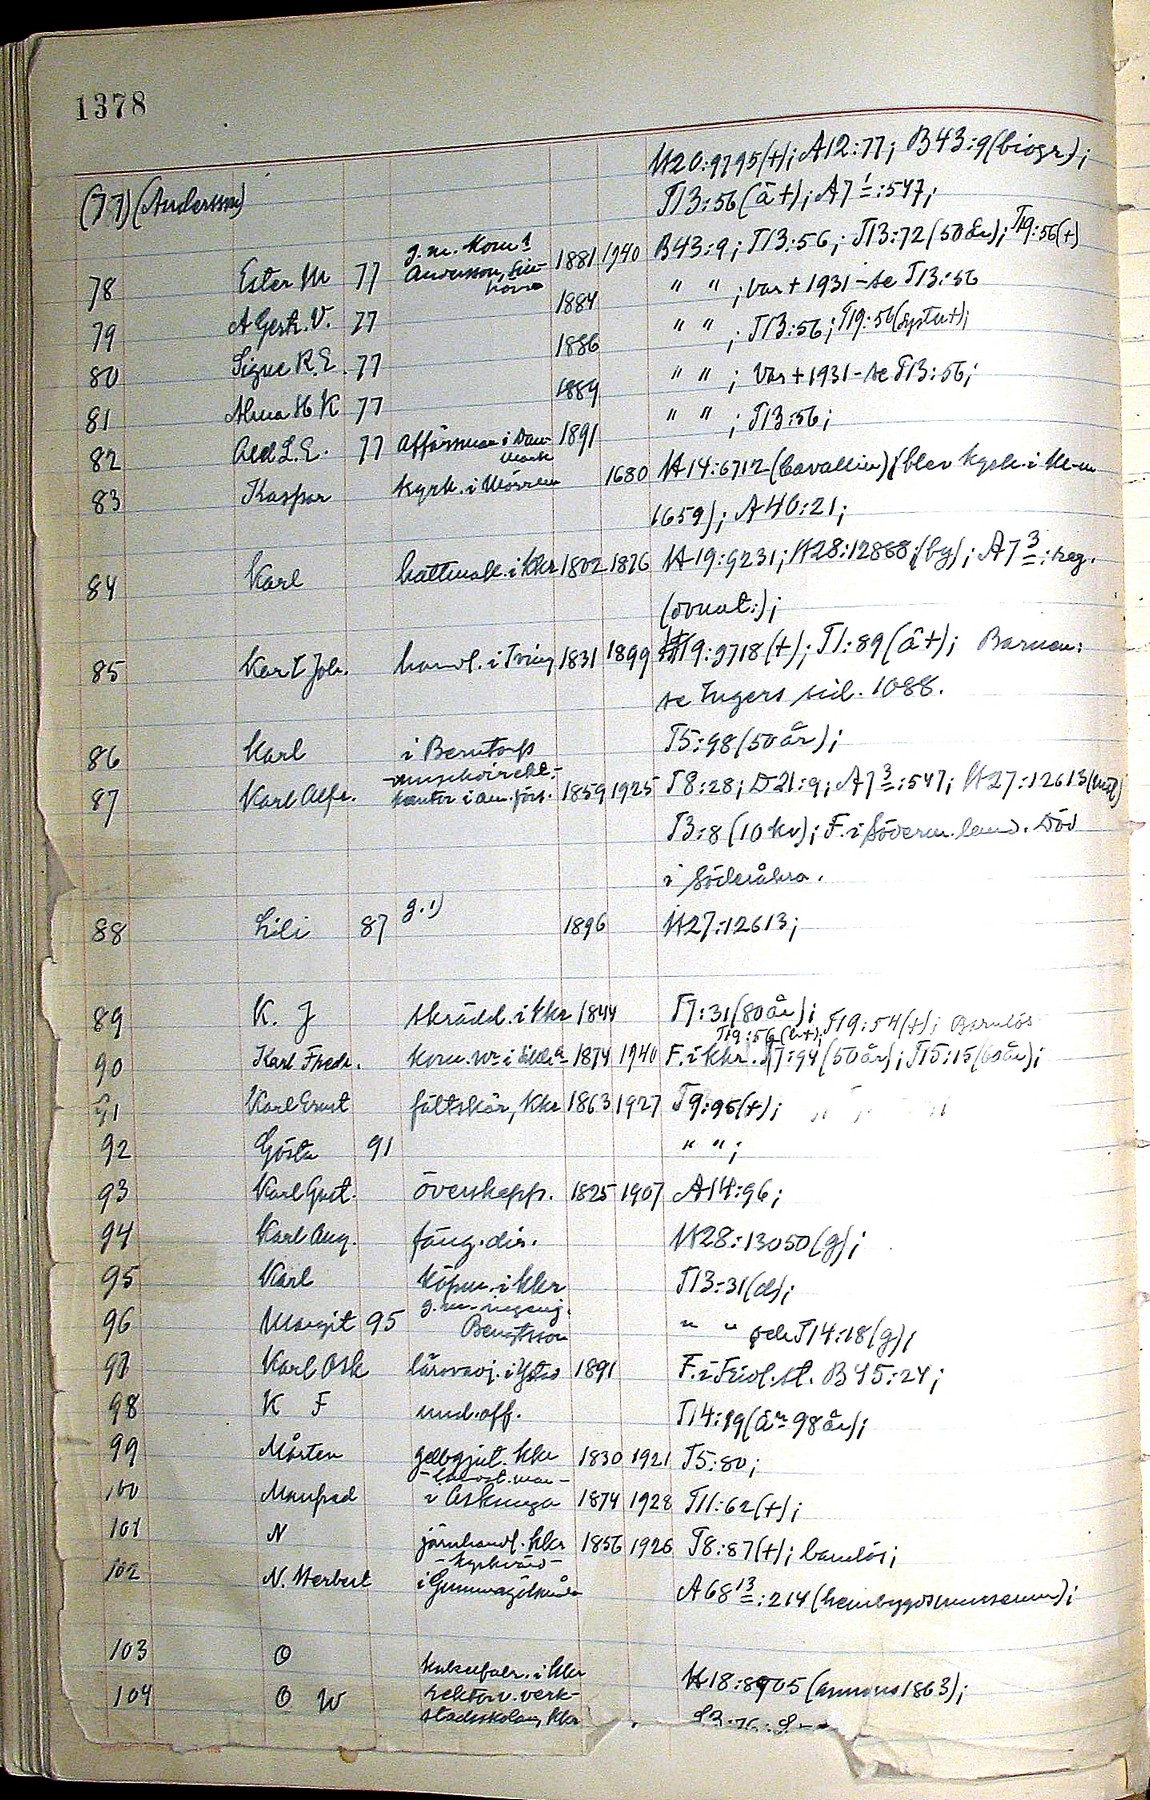 1378
(77) (Andersson) H20:9795(+); A12:77; B43:9(biogr);
T13:56(å+); A7 1:547;
78 Ester M 77 g.m. Andersson, 1881 1940 B43:9; T13:56; T13:72(50 år); T19:56(+)
79 A Gertr. V. 77 1884 " " ; var + 1931 - se T13:56
80 Signe R.E. 77 1886 " " ; T13:56; T19:56(syster+);
81 Alma H K 77 1889 " " ; var + 1931 - se T13:56;
82 Axel L.E. 77 affärsman i Danmark 1891 " " ; T13:56;
83 Kaspar kyrk. i 1680 H14:6712 (Cavallin) (blev kyrk. i
1659); A40:21;
84 Karl hattmak. i Kkr 1802 1876 H19:9231; H28:12888; (by); A7 3:reg.
(ovnat:);
85 Karl Joh. handl. i Tving 1831 1899 H19:9718(+); T1:89(å+); Barnen:
se Ingers sid. 1088.
86 Karl i Berntorp T5:98(50 år);
87 Karl Alfr. -musikdirekt.- kantor i am. förs. 1859 1925 T8:28; D21:9; A7 3:547; H27:12613
T3:8(10 kv); F. i Söderm. land. Död
i Söderåkra.
88 Lili 87 g. 1) 1896 H27:12613;
89 K. J skrädd. i Kkr 1844 T7:31(80 år);
T19:56 (b+); T19:54(+); Barnlös
90 Karl Fredr. 1874 1940 F. i Kkr. T7:94(50 år); T15:15(60 år);
91 Karl Ernst fältskär, Kkr 1863 1927 T9:95(+);
92 Gösta 91 " " ;
93 Karl Gust. överskepp. 1825 1907 A14:96;
94 Karl Aug. fäng. dir. H28:13050(g);
95 Karl köpm. i Kkr T13:31(d);
96 Margit 95 g.m. ingenj. Bengtsson " " och T14:18(g);
97 Karl Osk lärov.adj. i Ystad 1891 F. i Fridl.st. B45:24;
98 K F und.off. T14:19(är 98 år);
99 Mårten gelbgjut. Kkr 1830 1921 T5:80;
100 Manfred i Askunga 1874 1928 T11:62(+);
101 N järnhandl. Kkr 1856 1926 T8:87(+); barnlös;
102 N. Herbert -kyrkvärd- i Gummagölsmåla A68 13:214 (hembygdsmuseum);
103 O i Kkr H18:8905 (annons 1863);
104 O W rektor v. verkstadsskolan, Kkr